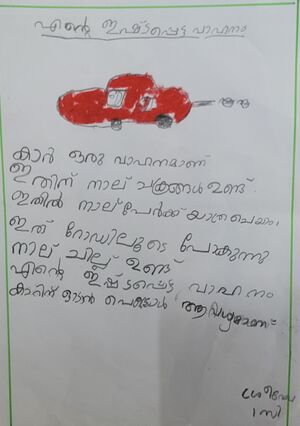 എന്റെ ഇഷ്ടപ്പെട്ട വാഹനം
കാർ ഒരു വാഹനമാണ്
ഇതിന് നാല് ചക്രങ്ങൾ ഉണ്ട്.
ഇതിൽ നാല് പേർക്ക് യാത്ര ചെയ്യാം
ഇത് റോഡിലൂടെ പോകുന്നു
നാല് ചില്ല് ഉണ്ട്
എന്റെ ഇഷ്ടപ്പെട്ട വാഹനം
കാറിന് ഓടാൻ പെട്രോൾ ആവശ്യമാണ്
1 സി